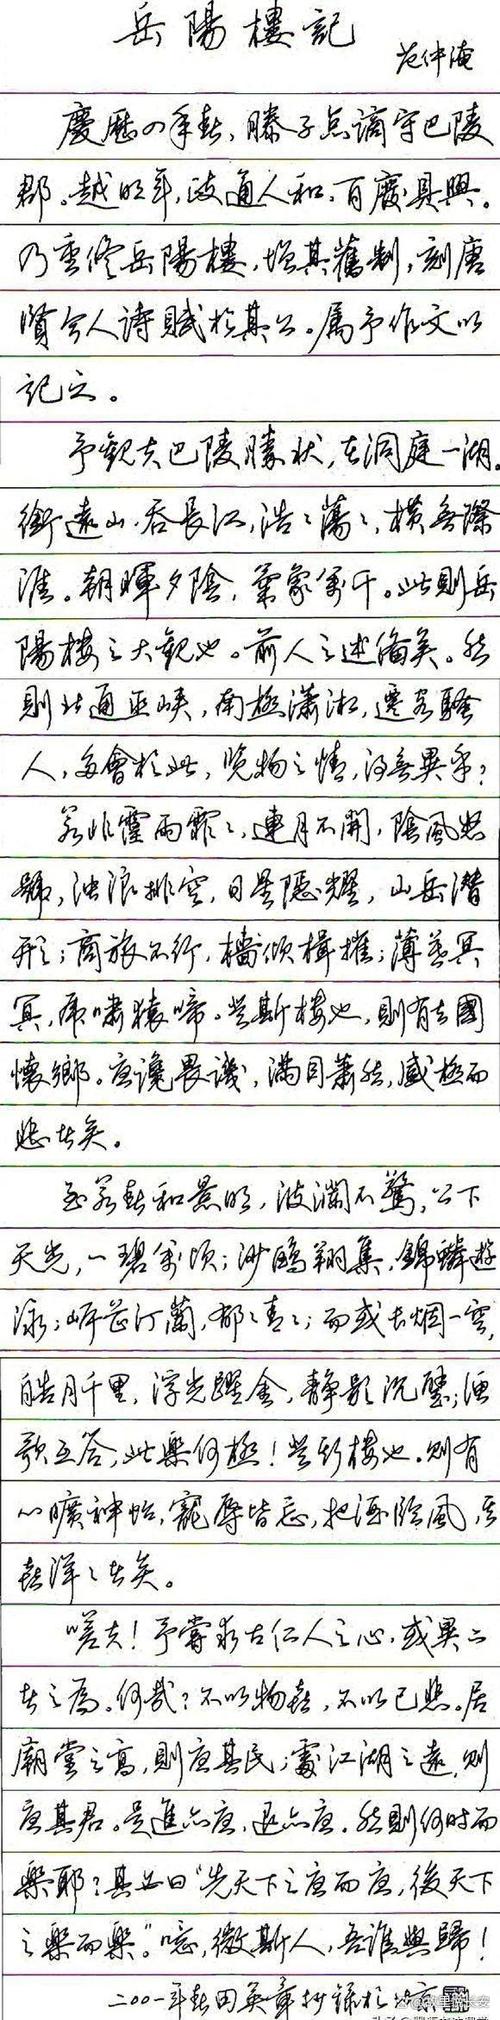 岳陽樓記
范仲淹
慶歷四年春，滕子京謫守巴陵
郡。越明年，政通人和，百廢具興。
乃重修岳陽樓，增其舊制，刻唐
賢今人詩賦於其上。属予作文以
記之。
予觀夫巴陵勝狀，在洞庭一湖。
銜遠山，吞長江，浩〻蕩〻，橫無際
涯。朝暉夕陰，氣象萬千。此則岳
陽樓之大觀也。前人之述備矣。然
則北通巫峽，南極瀟湘，遷客騷
人，多會於此，览物之情，得無異乎？
若非霪雨霏〻，連月不開，陰風怒
號，浊浪排空，日星隱耀，山岳潛
形；商旅不行，檣傾楫摧；薄暮冥
冥，虎嘯猿啼。登斯樓也，則有去國
懷鄉。憂讒畏譏，滿目蕭然，感極而
悲者矣。
至若春和景明，波瀾不驚，上下
天光，一碧萬頃；沙鷗翔集，錦鱗游
泳；岸芷汀蘭，郁〻青〻；而或长烟一空，
皓月千里，浮光躍金，靜影沉璧；漁
歌互答，此樂何極！登斯樓也。則有
心曠神怡，寵辱皆忘，把酒臨風，其
喜洋〻者矣。
嗟夫！予嘗求古仁人之心，或異二
者之為。何哉？不以物喜，不以己悲。居
廟堂之高，則憂其民；處江湖之遠，则
憂其君。是進亦憂，退亦憂。然則何时而
樂耶？其必曰“先天下之憂而憂，後天下
之樂而樂。”噫，微斯人，吾誰與歸！
二〇〇一年春田英章抄錄於北京